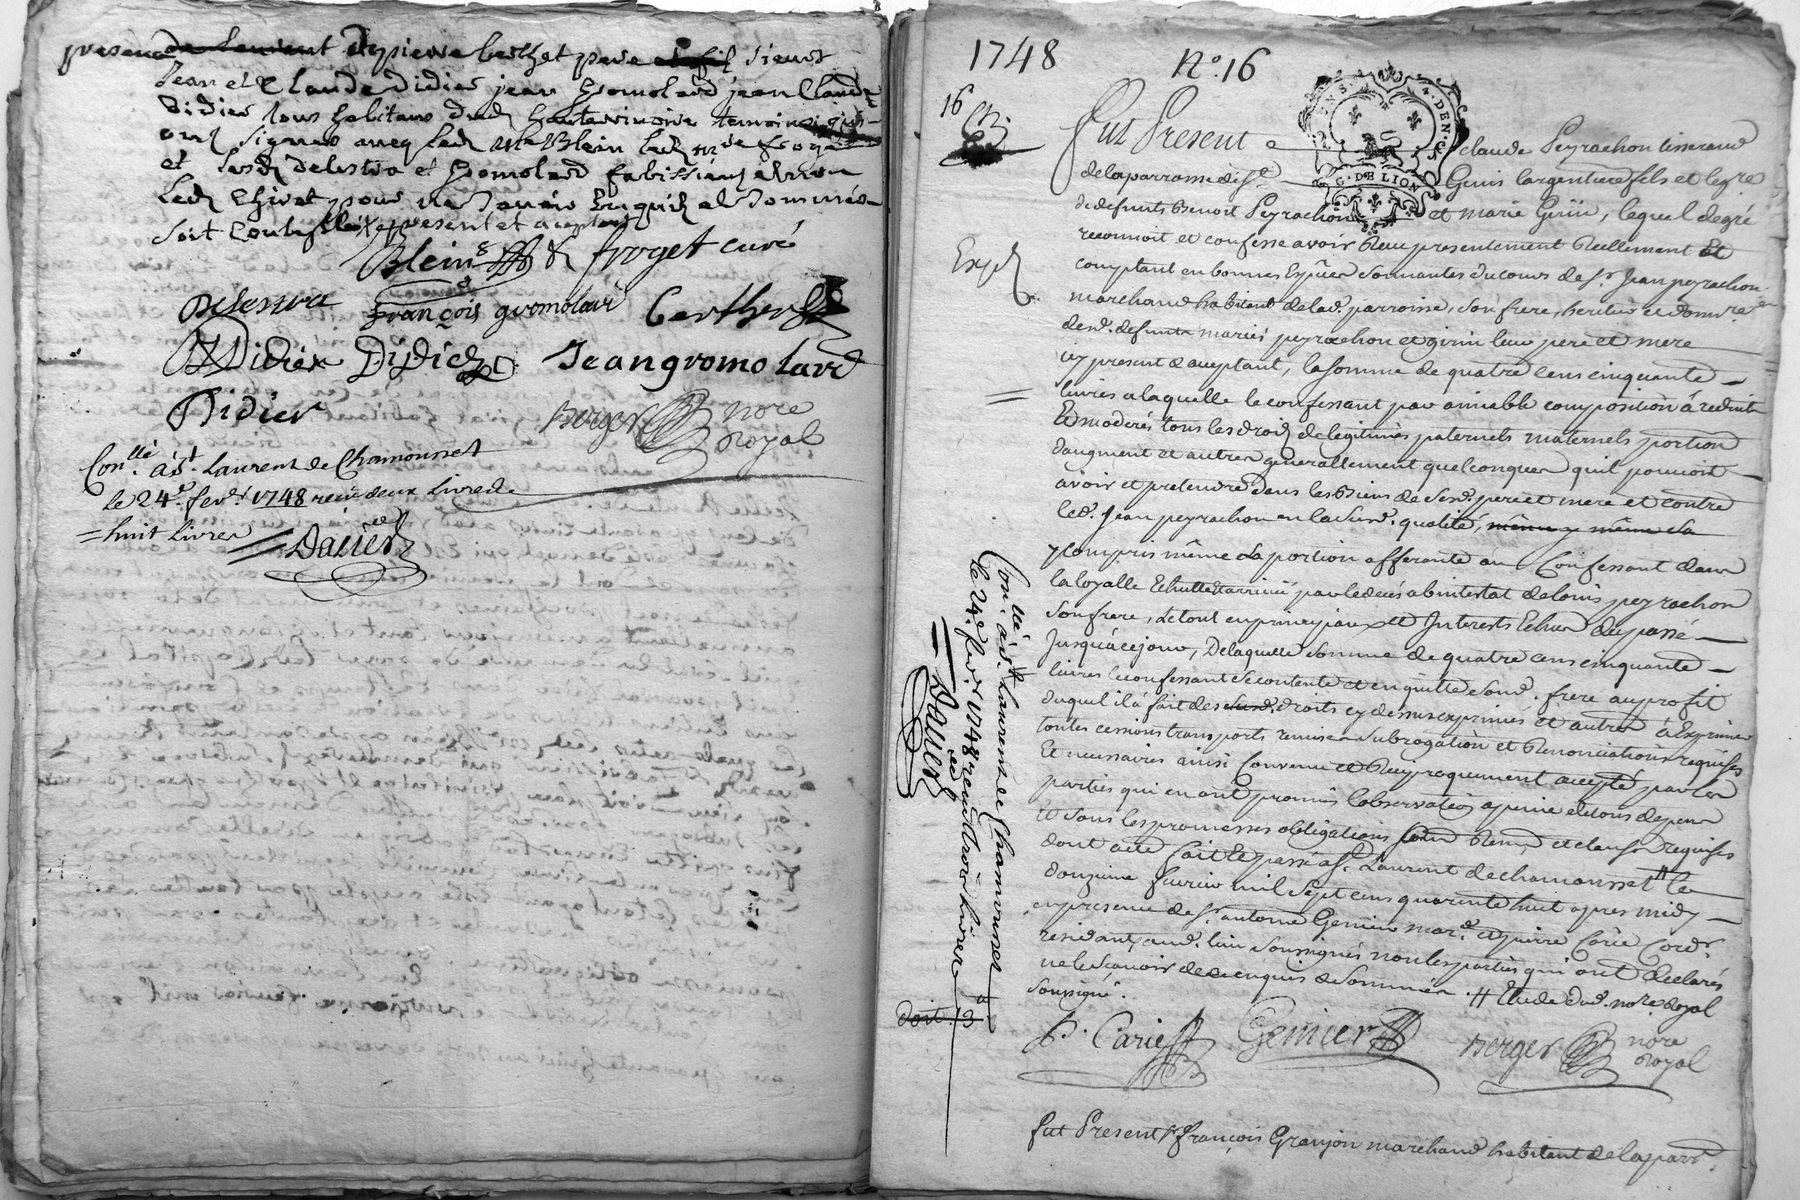 presence de Laurent et pierre berthet pere et fils sieurs
Jean et Claude Didier jean Gromolard jean Claude
Didier tous habitans dud hauterivoire temoins qui
ont signes avec led Mre Blein led Sr de froget
et lesd delestra et Gromolard
led Chirat pour ne scavoir Enquis et sommés
soit Controllé present et aceptant
Blein froget curé
Delestra françois gromolard Berthet
Didier Didier Jean gromolard
Didier Berger nore royal
Con.llé à St. Laurent de Chamousset
le 24e. fevr. 1748 recu deux Livres
= huit Livres = Daviet
1748 No. 16
16
Fut Present claude Peyrachon tisserand
de la parroisse de St. Genis Largentiere fils et legre
de defunts Benoit Peyrachon et marie Girin, lequel degré
reconnoit et confesse avoir Reçu presentement Reellement et
comptant en bonnes Espèces sonnantes du cours de Sr. Jean peyrachon
Exp.d
marchand habitant de lad. parroisse, son frere, heritier et donnre.
desd. defunts mariés peyrachon et girin leur pere et mere
icy present & aceptant, la somme de quatre cens cinquante
livres a laquelle le confessant par amiable composition à reduit
Et modérés tous les droits de legitimes paternels maternels portion
daugment et autres generallement quelconques quil pouvoit
avoir et pretendre dans les Biens de sesd. pere et mere et contre
led. Jean peyrachon en la susd. qualité, même y même la
y compris même la portion afferante au Confessant dans
la loyalle Echutte arrivée par le decés abintestat de Louis peyrachon
son frere, Le tout en principaux et Interests Echus du passé
Jusquà ce jour, De laquelle somme de quatre cens cinquante
livres le confessant se contente et en quitte sond. frere au profit
duquel il à fait des susd. droits cy dessus exprimés et autres à Exprimer
toutes cessions transports remises subrogation et Renonciations requises
Et necessaires ainsi Convenu et Reciproquement accepté par les
parties qui en ont promis lobservation a peine de tous depens
et sous les promesses obligations Renon. et clauses requises
dont acte Fait Et passé a St. Laurent de chamousset # le
douzieme fevrier mil sept cens quarente huit apres midy
en presence de Sr. antoine Genier mard. et pierre Carie Cordr.
residants aud. lieu soussignés non les parties qui ont declarés
ne le scavoir de ce enquis & sommés. # Etude dud. nore. royal
soussigné.
P. Carie Genier Berger nore royal
Con.llé à St. Laurent de Chamousset
le 24e. fevr. 1748 recu trois Livres
= Daviet
doit 3
fut Present Sr françois Granjon marchand habitant de la parr.